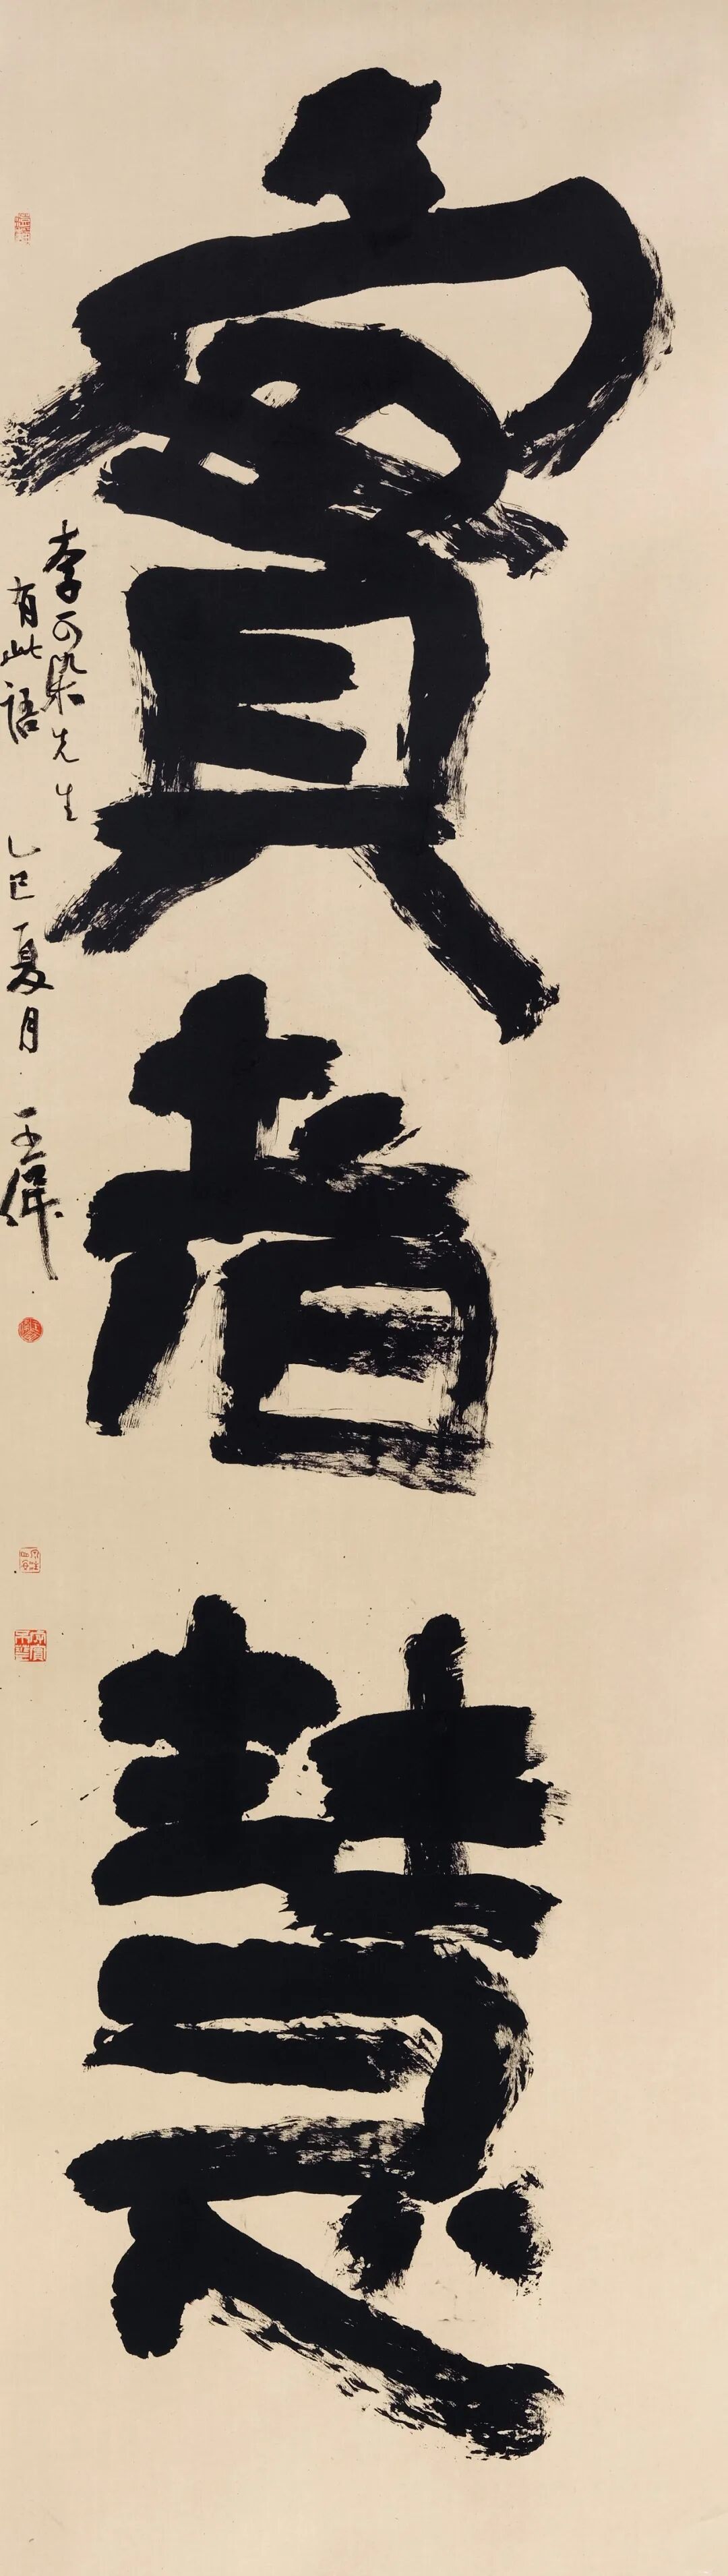 實者慧
李可染先生
有此語 乙巳夏月 王偉